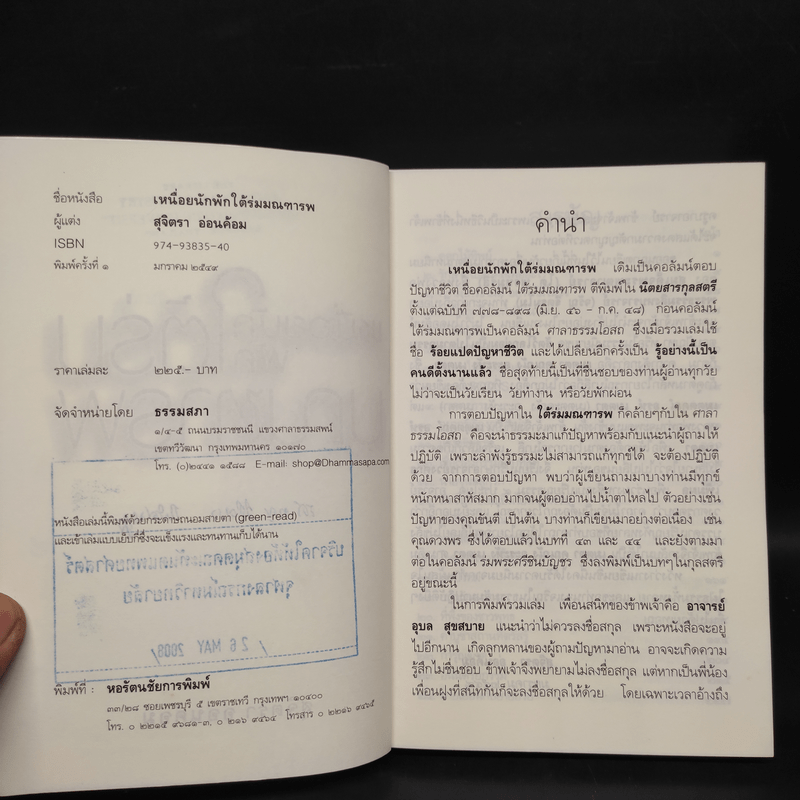 ชื่อหนังสือ เหนื่อยนักพักใต้ร่มมณฑารพ
ผู้แต่ง สุจิตรา อ่อนค้อม
ISBN 974-93835-40
พิมพ์ครั้งที่ ๑ มกราคม ๒๕๔๙
ราคาเล่มละ ๒๒๕.- บาท
จัดจำหน่ายโดย ธรรมสภา
๑/๔-๕ ถนนบรมราชชนนี แขวงศาลาธรรมสพน์
เขตทวีวัฒนา กรุงเทพมหานคร ๑๐๑๗๐
โทร. (๐)๒๔๔๑ ๑๕๘๘ E-mail: shop@Dhammasapa.com
หนังสือเล่มนี้พิมพ์ด้วยกระดาษถนอมสายตา (green-read)
และเข้าเล่มแบบเย็บกี่ซึ่งจะแข็งแรงและทนทานเก็บได้นาน
บริจาคให้ห้องสมุดคณะทันตแพทยศาสตร์
จุฬาลงกรณ์มหาวิทยาลัย
26 MAY 2008
พิมพ์ที่ : หอรัตนชัยการพิมพ์
๓๓/๒๘ ซอยเพชรบุรี ๕ เขตราชเทวี กรุงเทพฯ ๑๐๔๐๐
โทร. ๐ ๒๒๑๕ ๙๖๘๑-๓, ๐ ๒๒๑๖ ๙๔๖๔ โทรสาร ๐ ๒๒๑๖ ๙๔๖๕
คำนำ
เหนื่อยนักพักใต้ร่มมณฑารพ เดิมเป็นคอลัมน์ตอบ
ปัญหาชีวิต ชื่อคอลัมน์ ใต้ร่มมณฑารพ ตีพิมพ์ใน นิตยสารกุลสตรี
ตั้งแต่ฉบับที่ ๗๗๘-๘๙๘ (มิ.ย. ๔๖ - ก.ค. ๔๘) ก่อนคอลัมน์
ใต้ร่มมณฑารพเป็นคอลัมน์ ศาลาธรรมโอสถ ซึ่งเมื่อรวมเล่มใช้
ชื่อ ร้อยแปดปัญหาชีวิต และได้เปลี่ยนอีกครั้งเป็น รู้อย่างนี้เป็น
คนดีตั้งนานแล้ว ชื่อสุดท้ายนี้เป็นที่ชื่นชอบของท่านผู้อ่านทุกวัย
ไม่ว่าจะเป็นวัยเรียน วัยทำงาน หรือวัยพักผ่อน
การตอบปัญหาใน ใต้ร่มมณฑารพ ก็คล้ายๆกับใน ศาลา
ธรรมโอสถ คือจะนำธรรมะมาแก้ปัญหาพร้อมกับแนะนำผู้ถามให้
ปฏิบัติ เพราะลำพังรู้ธรรมะไม่สามารถแก้ทุกข์ได้ จะต้องปฏิบัติ
ด้วย จากการตอบปัญหา พบว่าผู้เขียนถามมาบางท่านมีทุกข์
หนักหนาสาหัสมาก มากจนผู้ตอบอ่านไปน้ำตาไหลไป ตัวอย่างเช่น
ปัญหาของคุณขันตี เป็นต้น บางท่านก็เขียนมาอย่างต่อเนื่อง เช่น
คุณดวงพร ซึ่งได้ตอบแล้วในบทที่ ๔๓ และ ๔๔ และยังตามมา
ต่อในคอลัมน์ ร่มพระศรีชินบัญชร ซึ่งลงพิมพ์เป็นบทๆในกุลสตรี
อยู่ขณะนี้
ในการพิมพ์รวมเล่ม เพื่อนสนิทของข้าพเจ้าคือ อาจารย์
อุบล สุขสบาย แนะนำว่าไม่ควรลงชื่อสกุล เพราะหนังสือจะอยู่
ไปอีกนาน เกิดลูกหลานของผู้ถามปัญหามาอ่าน อาจจะเกิดความ
รู้สึกไม่ชื่นชอบ ข้าพเจ้าจึงพยายามไม่ลงชื่อสกุล แต่หากเป็นพี่น้อง
เพื่อนฝูงที่สนิทกันก็จะลงชื่อสกุลให้ด้วย โดยเฉพาะเวลาอ้างถึง